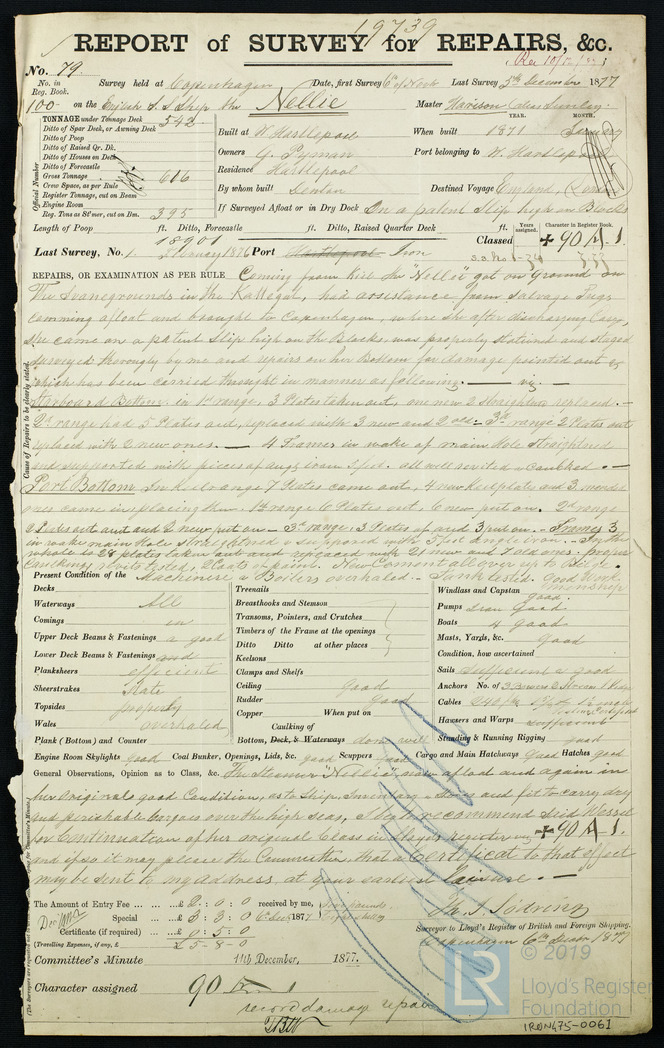 19739
REPORT OF SURVEY for REPAIRS, &c.
Rec 10/12/77
No. 79.
No. in Reg. Book. Survey held at Copenhagen Date, first Survey 6th of Novb Last Survey 5th December 1877
100 on the English S. S. Ship the Nellie Master Harrison
TONNAGE under Tonnage Deck 542
Ditto of Spar Deck, or Awning Deck
Ditto of Poop
Ditto of Raised Qr. Dk.
Ditto of Houses on Deck
Ditto of Forecastle
Gross Tonnage 616
Crew Space, as per Rule
Register Tonnage, cut on Beam
Engine Room
Reg. Tons as St'mer, cut on Bm. 395
Official Number
YEAR. MONTH.
Built at W. Hartlepool When built 1871 January
Owners G. Pyman Port belonging to W. Hartlepool
Residence Hartlepool
By whom built Denton Destined Voyage England,
If Surveyed Afloat or in Dry Dock On a patent Slip high on Blocks
Length of Poop ft. Ditto, Forecastle ft. Ditto, Raised Quarter Deck ft.
Years assigned. Character in Register Book.
Classed 90 A 1.
18901
Last Survey, No. 1876 Port Iron
REPAIRS, OR EXAMINATION AS PER RULE Coming from the "Nellie" got on Ground on
The in the Kattegat, had assistance from Salvage Tugs
comming afloat and brought to Copenhagen, where she after discharging Cargo,
She came on a patent Slip high on the Blocks, was properly and Staged
surveyed thorougly by me and repairs on her Bottom for damage pointed out &
which has been carried throught in manner as following. — viz —
Starboard Bottom in 1st range, 3 Plates taken out, one new 2 straighten replaced. —
2d range had 5 Plates out, replaced with 3 new and 2 old. 3d range 2 Plates out
replaced with 2 new ones. — 4 Frames in wake of main Hole straightened
and supported with pieces of angg iron 5 feet. all well rivited & Caulked. —
Port Bottom In range 7 Plates came out, 4 new and 3
ones came in placing them, 1st range 6 Plates out, 6 new put on. 2d range
2 Plates out and 2 new put on — 3d range, 3 Plates out and 3 put on. — Frames 3
in wake main Hole straightened & supposed with 5 feet angle iron. — In the
whole is 28 plates taken out and replaced with 21 new and 7 old ones. proper
Caulking, rivits tested, 2 Coats of paint. New Cement all over up to Bilge.
Cause of Repairs to be clearly stated.
Present Condition of the Machinerie & Boilers overhaled. — Tank tested. Good Workmanship
Decks
Waterways All
Comings in
Upper Deck Beams & Fastenings a good
Lower Deck Beams & Fastenings and
Planksheers efficient
Sheerstrakes State
Topsides properly
Wales overhaled
Plank (Bottom) and Counter
Treenails
Breasthooks and Stemson
Transoms, Pointers, and Crutches
Timbers of the Frame at the openings
Ditto Ditto at other places
Keelsons
Clamps and Shelfs
Ceiling Good
Rudder Good
Copper When put on
Caulking of
Bottom, Deck, & Waterways done well
Windlass and Capstan good.
Pumps Iron Good
Boats 4 good
Masts, Yards, &c. Good
Condition, how ascertained
Sails sufficient & good
Anchors No. of 3 Bowers 2 Streams 1 Kedge
Cables
Hawsers and Warps sufficient
Standing & Running Rigging good
Engine Room Skylights good Coal Bunker, Openings, Lids, &c. good Scuppers good Cargo and Main Hatchways Good Hatches good
General Observations, Opinion as to Class, &c. The Steamer "Nellie" now afloat and again in
her original good Condition, as to Ship, Inventory & and fit to carry dry
and perishable Cargoes over the high seas, I beg to recommend said Vessel
for Continuation of her original Class in Lloyds register viz 90 A 1.
and if so it may pleece the Committee, that a Certificat to that effect
may be sent to my address, at your earliest leisure. —
The Amount of Entry Fee ... £ 2 : 0 : 0 received by me,
Special ... £ 3 : 3 : 0 6 Decr 1877
Certificate (if required) ... £ 0 : 5 : 0
(Travelling Expenses, if any, £ £ 5 - 8 - 0
Surveyor to Lloyd's Register of British and Foreign Shipping.
Copenhagen 6th Decbr 1877
Committee's Minute 11th December, 1877.
Character assigned 90 A 1
record damage repair
© 2019
LR
Lloyd's Register
Foundation
IRON475-0061